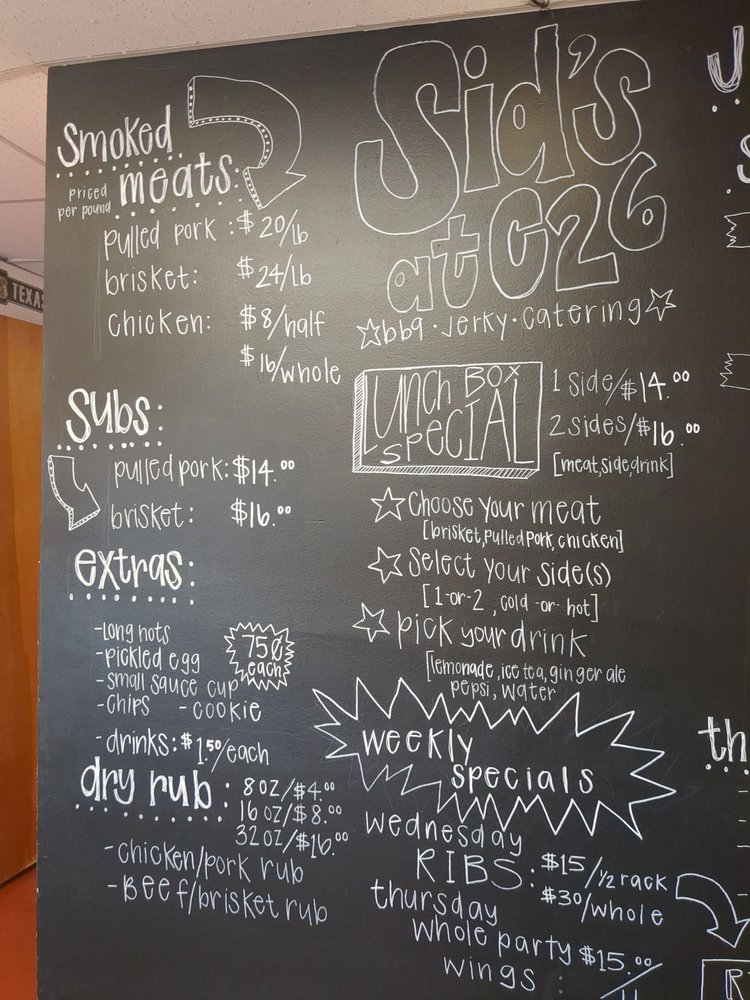 Sid's
at C26
☆bbq · Jerky · Catering☆
Smoked
meats:
priced
per pound
pulled pork: $20/lb
brisket: $24/lb
chicken: $8/half
$16/whole
Subs:
pulled pork: $14.00
brisket: $16.00
extras:
-long hots
-pickled egg
-small sauce cup
-chips -cookie
75¢
each
-drinks: $1.50/each
dry rub:
8oz/$4.00
16oz/$8.00
32oz/$16.00
-chicken/pork rub
-Beef/brisket rub
Lunch Box
Special
1 side/$14.00
2 sides/$16.00
[meat,side,drink]
☆Choose your meat
[brisket, pulled pork, chicken]
☆Select your side(s)
[1-or-2, cold -or- hot]
☆pick your drink
[lemonade, ice tea, ginger ale
pepsi, water
weekly
specials
wednesday
RIBS: $15/½ rack
$30/whole
thursday
whole party
wings : $15.00
TEXAS
J
S
th
R